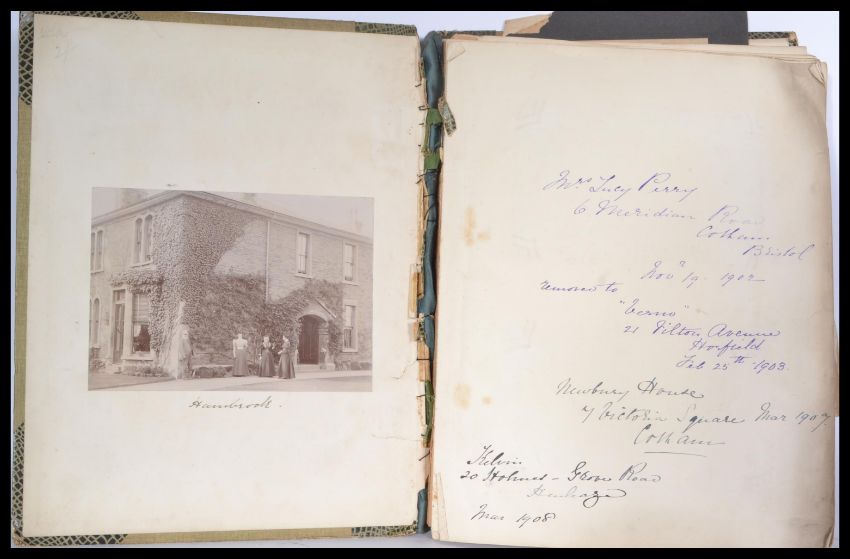 Hambrook.
Mrs Lucy Perry
6 Meridian Road
Cotham
Bristol
Novr 19. 1902
removed to
"Verno"
21 Filton Avenue
Horfield
Feb 25th 1903.
Newbury House
7 Victoria Square Mar 1907
Cotham
Kelvin
20 Holmes - Grove Road
Henleaze
Mar 1908